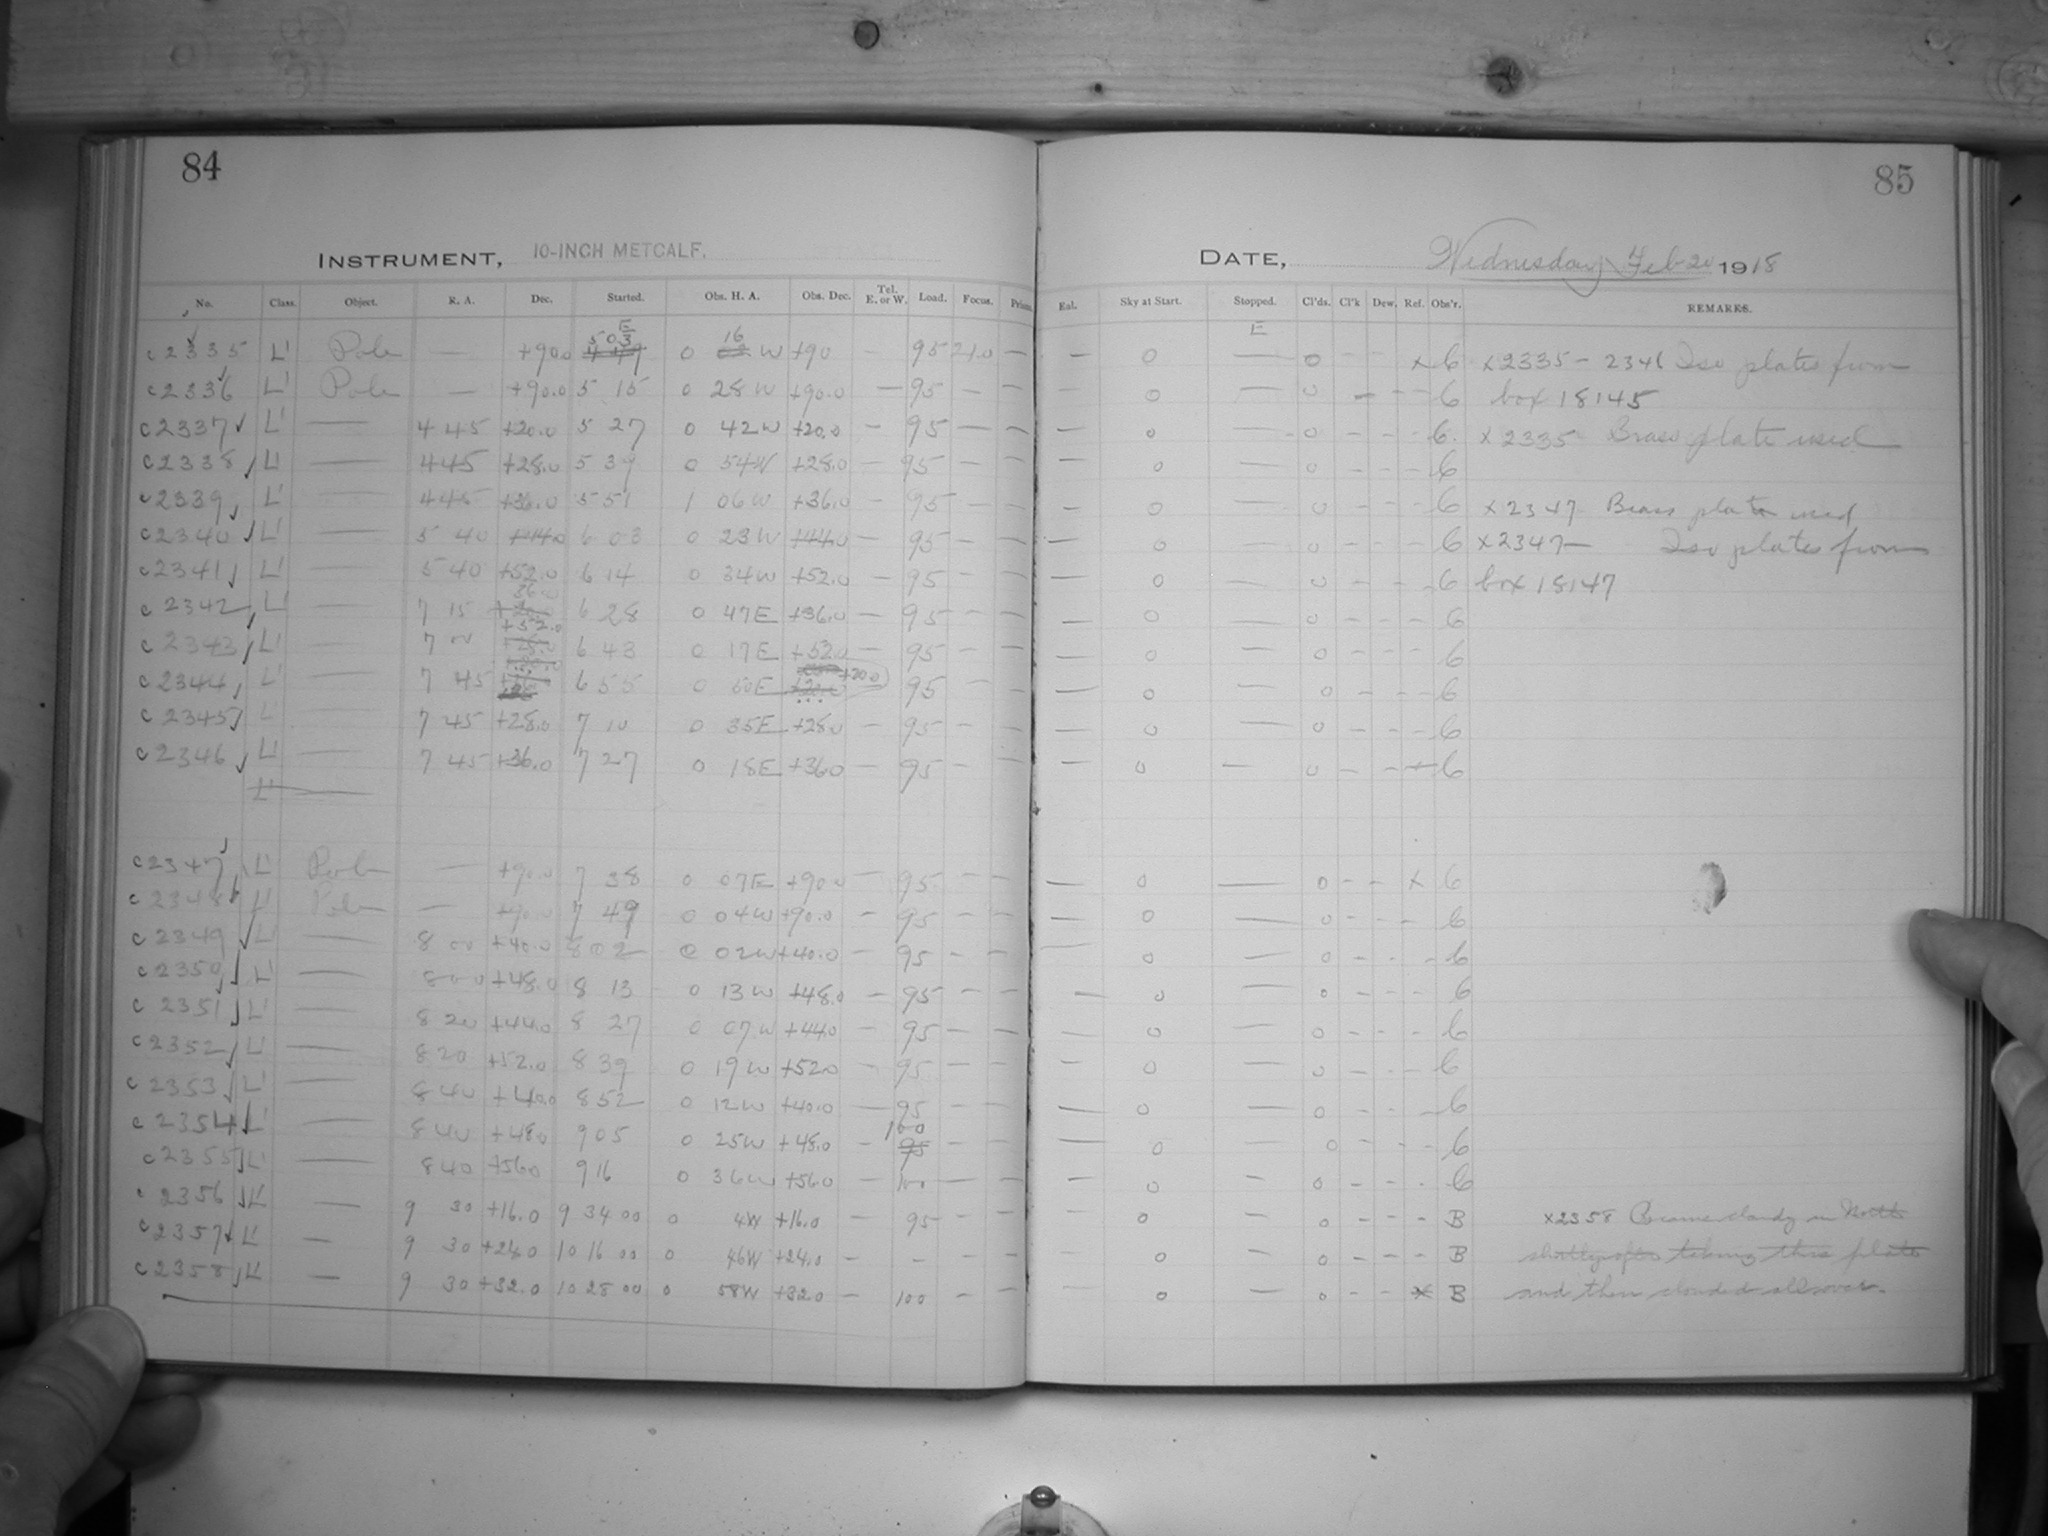 84
85
INSTRUMENT, 10-INCH METCALF.
DATE, Wednesday Feb 20 1918
No. Class. Object. R. A. Dec. Started. Obs. H. A. Obs. Dec. Tel. E. or W. Load. Focus.
Sky at Start. Stopped. Cl'ds. Cl'k Dew. Ref. Obs'r. REMARKS.
E E
c2335 L' Pole — +90.0 5 03 0 16 W +90 — 95 21.0 — — 0 — 0 - - x 6 x2335 - 2346 Iso plates from
c2336 L' Pole — +90.0 5 15 0 28 W +90.0 — 95 — — — 0 — 0 — - - 6 box 18145
c2337 L' — 4 45 +20.0 5 27 0 42 W +20.0 — 95 — — — 0 — 0 - - - 6. x 2335 Brass plate used
c2338 L' — 4 45 +28.0 5 39 0 54 W +28.0 — 95 — — — 0 — 0 - - - 6
c2339 L' — 4 45 +36.0 5 51 1 06 W +36.0 — 95 — — — 0 — 0 - - - 6 x2347 Brass plate used
c2340 L' — 5 40 +44.0 6 03 0 23 W +44.0 — 95 — — — 0 — 0 - - - 6 x2347— Iso plates from
c2341 L' — 5 40 +52.0 6 14 0 34 W +52.0 — 95 — — — 0 — 0 - - - 6 box 18147
c2342 L' — 7 15 36.0 6 28 0 47 E +36.0 — 95 — — — 0 — 0 - - - 6
c2343 L' — 7 00 +52.0 6 43 0 17 E +52.0 — 95 — — — 0 — 0 - - - 6
c2344 L' — 7 45 6 55 0 50 E +20.0 95 — — — 0 — 0 - - - 6
c2345 L' — 7 45 +28.0 7 10 0 35 E +28.0 — 95 — — — 0 — 0 - - - 6
c2346 L' — 7 45 +36.0 7 27 0 18 E +36.0 — 95 — — — 0 — 0 - - - 6
L'
c2347 L' Pole — +90.0 7 38 0 07 E +90.0 — 95 — — — 0 — 0 - - x 6
c2348 L' Pole — +90.0 7 49 0 04 W +90.0 — 95 — — — 0 — 0 - - - 6
c2349 L' — 8 00 +40.0 8 02 0 02 W +40.0 — 95 - — — 0 — 0 - - - 6
c2350 L' — 8 00 +48.0 8 13 0 13 W +48.0 — 95 — — — 0 — 0 - - - 6
c2351 L' — 8 20 +44.0 8 27 0 07 W +44.0 — 95 — — — 0 — 0 - - - 6
c2352 L' — 8 20 +52.0 8 39 0 19 W +52.0 — 95 — — — 0 — 0 - - - 6
c2353 L' — 8 40 +40.0 8 52 0 12 W +40.0 — 95 — — — 0 — 0 - - - 6
c2354 L' — 8 40 +48.0 9 05 0 25 W +48.0 — 100 — — — 0 — 0 - - - 6
c2355 L' — 8 40 +56.0 9 16 0 36 W +56.0 — 100 — — — 0 — 0 - - - 6
c2356 L' — 9 30 +16.0 9 34 00 0 4W +16.0 — 95 - — — 0 — 0 - - - B x2358 Became cloudy in North
c2357 L' — 9 30 +24.0 10 16 00 0 46W +24.0 — - - — — 0 — 0 - - - B shortly after taking this plate
c2358 L' — 9 30 +32.0 10 28 00 0 58W +32.0 — 100 — — — 0 — 0 - - x B and then clouded all over.